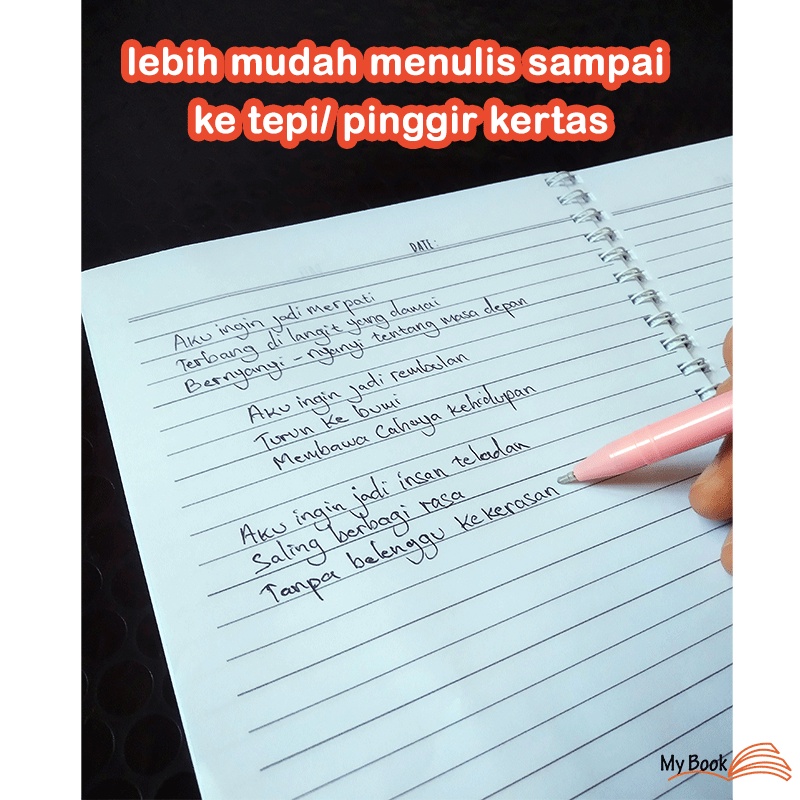 lebih mudah menulis sampai
ke tepi/ pinggir kertas
DATE:
Aku ingin jadi merpati
Terbang di langit yang damai
Bernyanyi - nyanyi tentang masa depan
Aku ingin jadi rembulan
Turun ke bumi
Membawa Cahaya kehidupan
Aku ingin jadi insan teladan
Saling berbagi rasa
Tanpa belenggu kekerasan
My Book